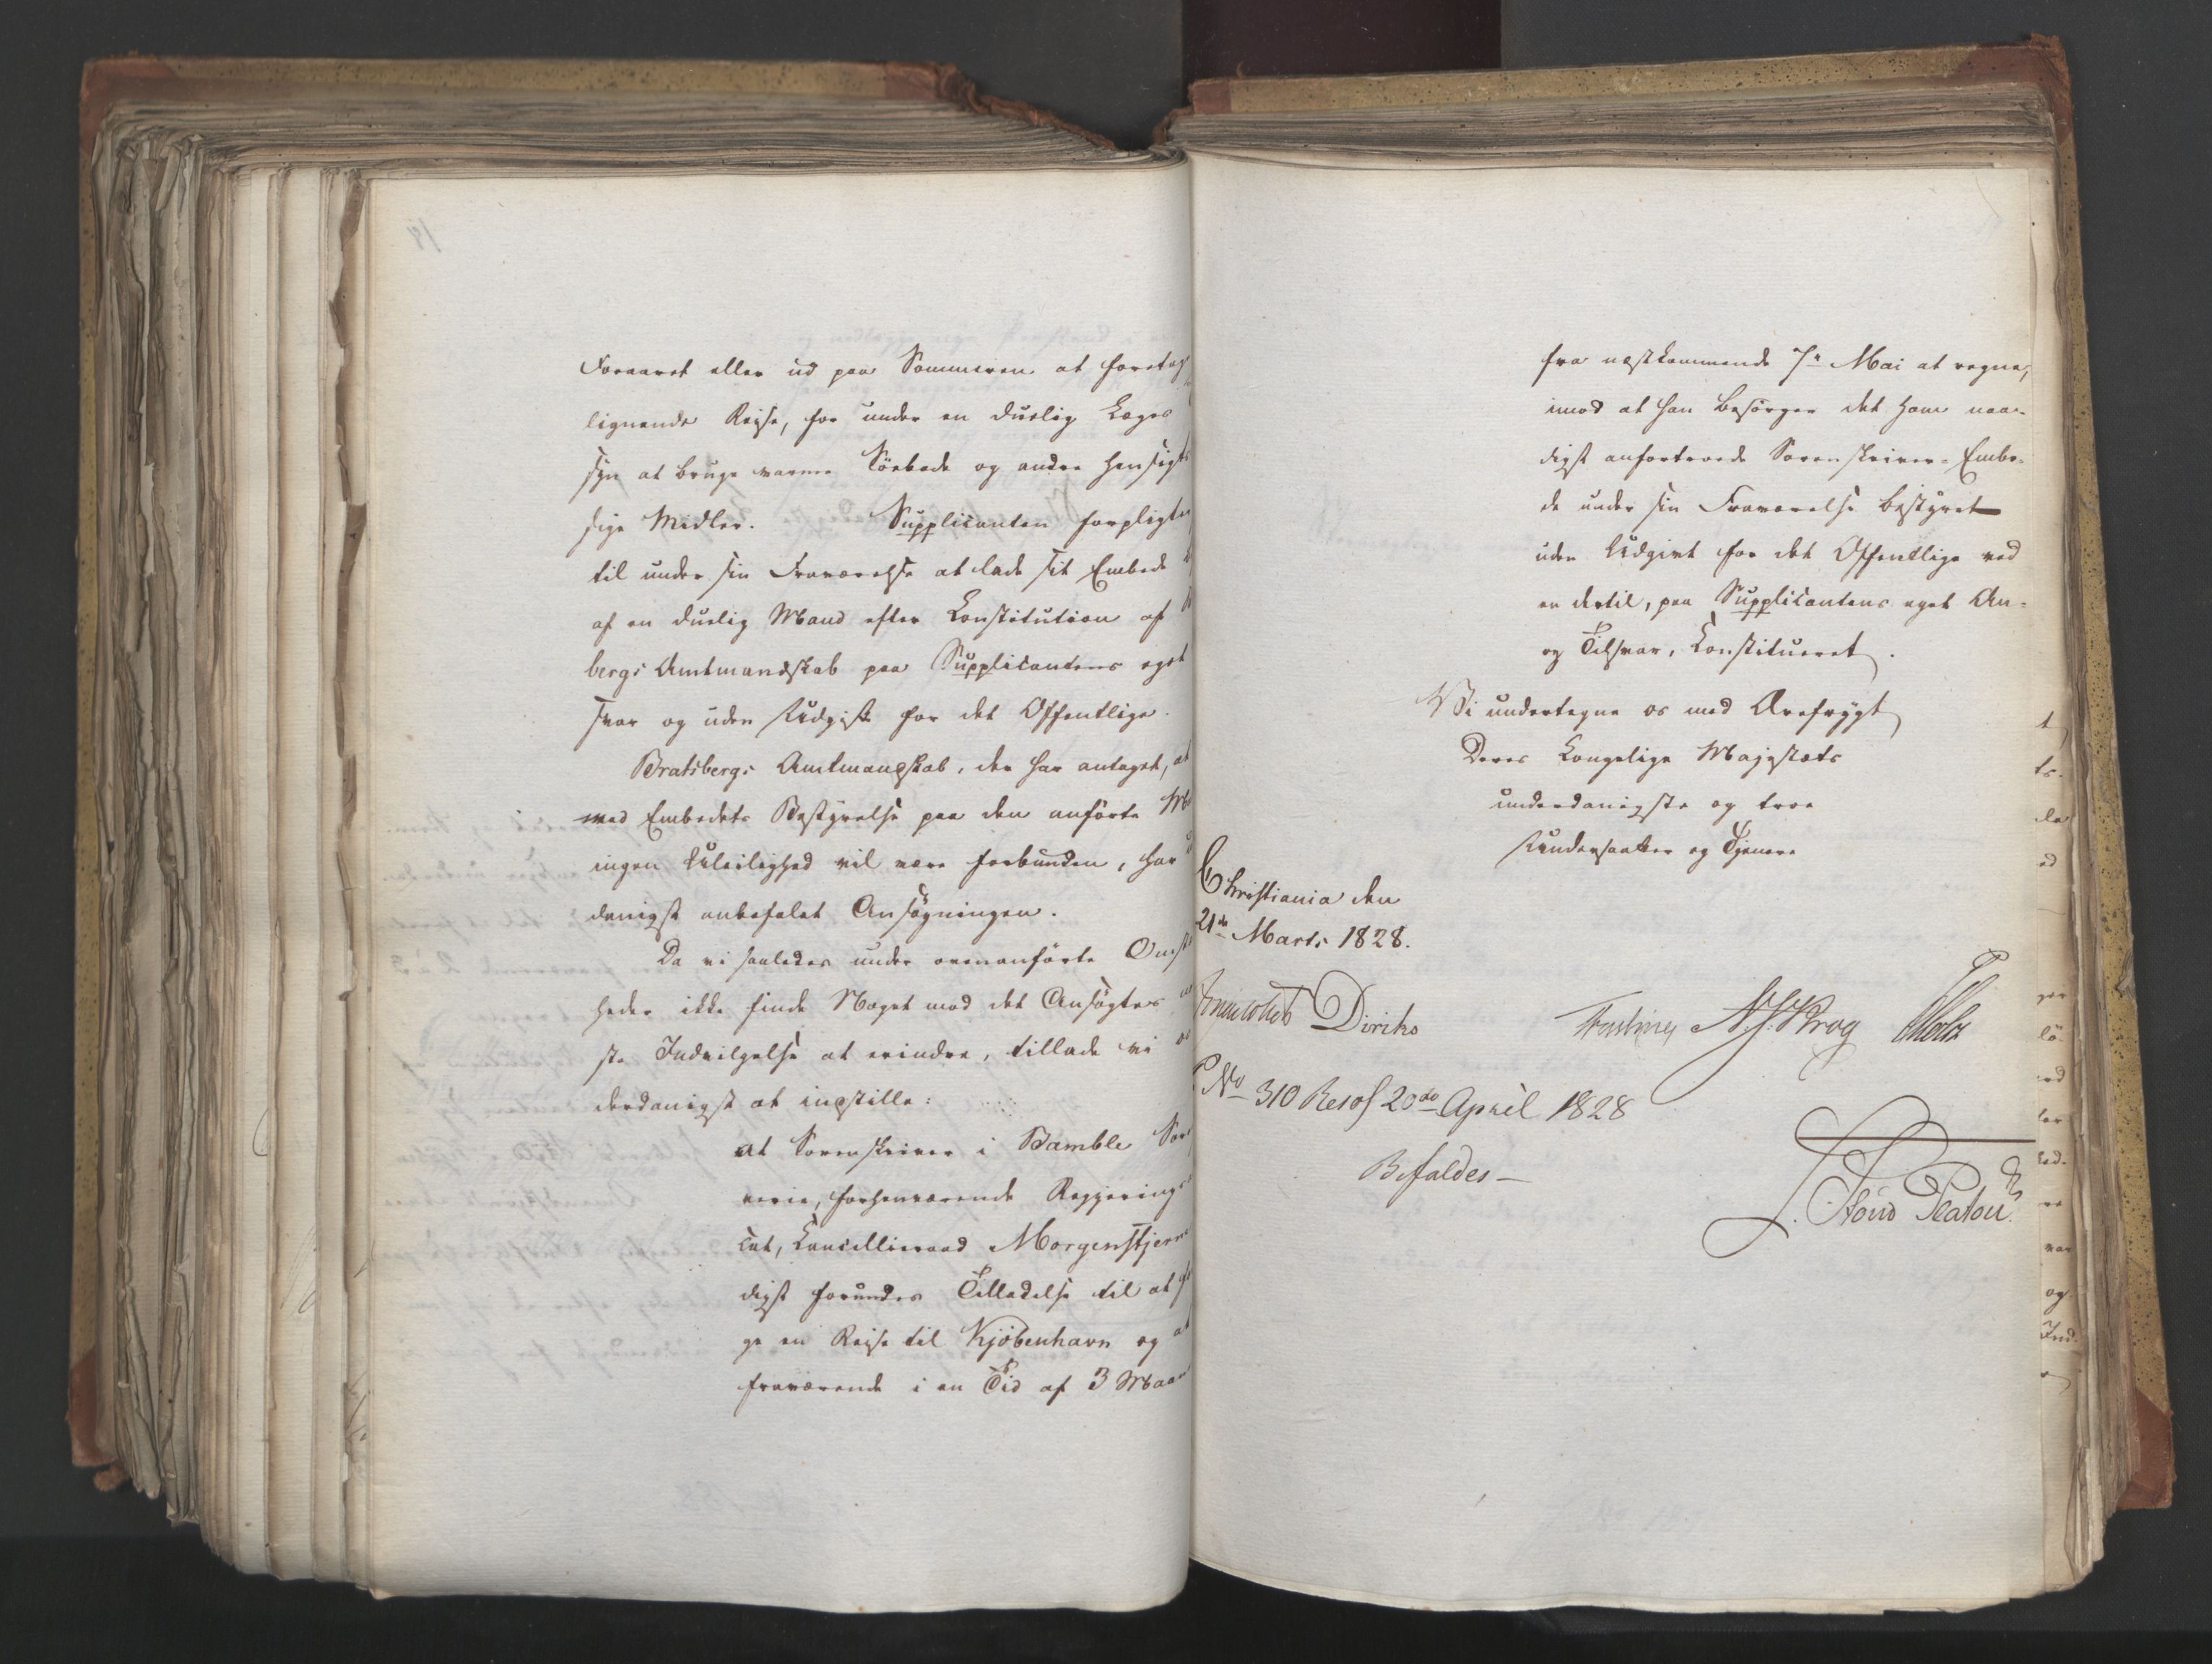 Foraaret eller ud paa Sommeren at foretag
lignende Reise, for under en duelig Læges
syn at bruge varme Söebade og andre hensigts
sige Midler. Supplicanten forpligter
til under sin Fraværelse at lade sit Embede
af en duelig Mand efter Constitution af
bergs Amtmandskab paa Supplicantens eget
svar og uden Udgift for det Offentlige.
Bratsbergs Amtmandskab, der har antaget, at
med Embedets Bestyrelse paa den anförte
ingen Uleilighed vil være forbunden, har
danigst anbefalet Ansögningen.
Da vi saaledes under ovenanförte Omst
heder ikke finde Noget mod det Ansögtes
ste Indvilgelse at erindre, tillade vi os
derdanigst at indstille:
at Sorenskriver i Bamble Sor
verie, forhenværende Regjerings
cat, Cancellieraad Morgenstjerne
digst forundes Tilladelse til at
ge en Reise til Kjöbenhavn og at
fraværende i en Tid af 3 Maan
fra næstkommende 7de Mai at regne,
imod at han besörger det ham naa-
digst anfortroede Sorenskriver-Embe-
de under sin Fraværelse bestyret
uden Udgivt for det Offentlige ved
en dertil, paa Supplicantens eget An-
og Tilsvar, Constitueret.
Vi undertegne os med Ærefrygt
Deres Kongelige Majestæts
underdanigste og troe
Undersaatter og Tjenere
Christiania den
21de Marts 1828.
Diriks Fasting N. J. Krog Holst
No 310 Resol 20de April 1828
Bifaldes